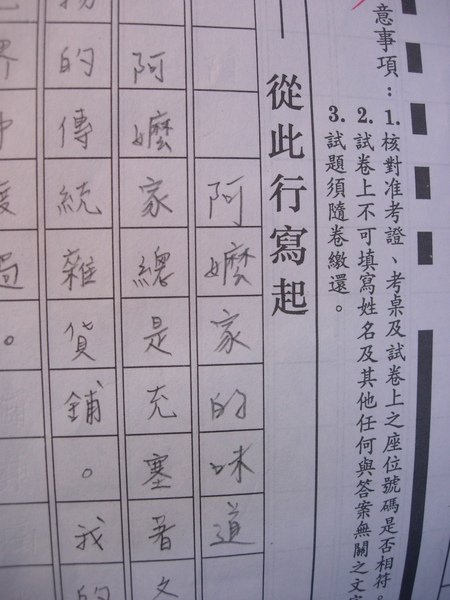 意事項：1.核對准考證、考桌及試卷上之座位號碼是否相符。
2.試卷上不可填寫姓名及其他任何與答案無關之文字
3.試題須隨卷繳還。
從此行寫起
阿嬤家的味道
阿嬤家總是充塞著
的傳統雜貨鋪。我的